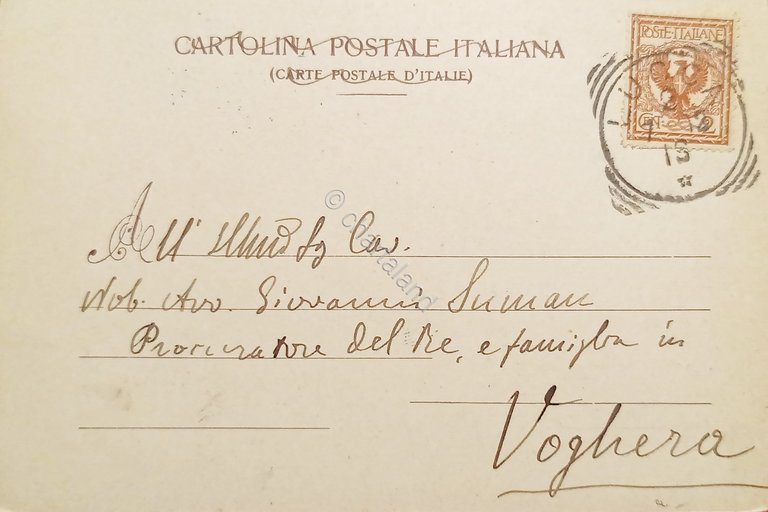 CARTOLINA POSTALE ITALIANA
(CARTE POSTALE D'ITALIE)
POSTE·ITALIANE
CENT. 2
LUCCA
18
© cartaland
All' Illmo Sg Cav.
Nob. Avv. Giovanni Suman
Procuratore del Re, e famiglia in
Voghera